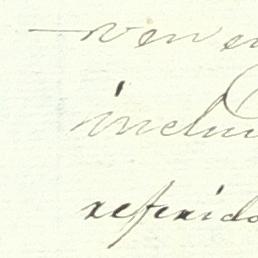 ven e
inclui
referido